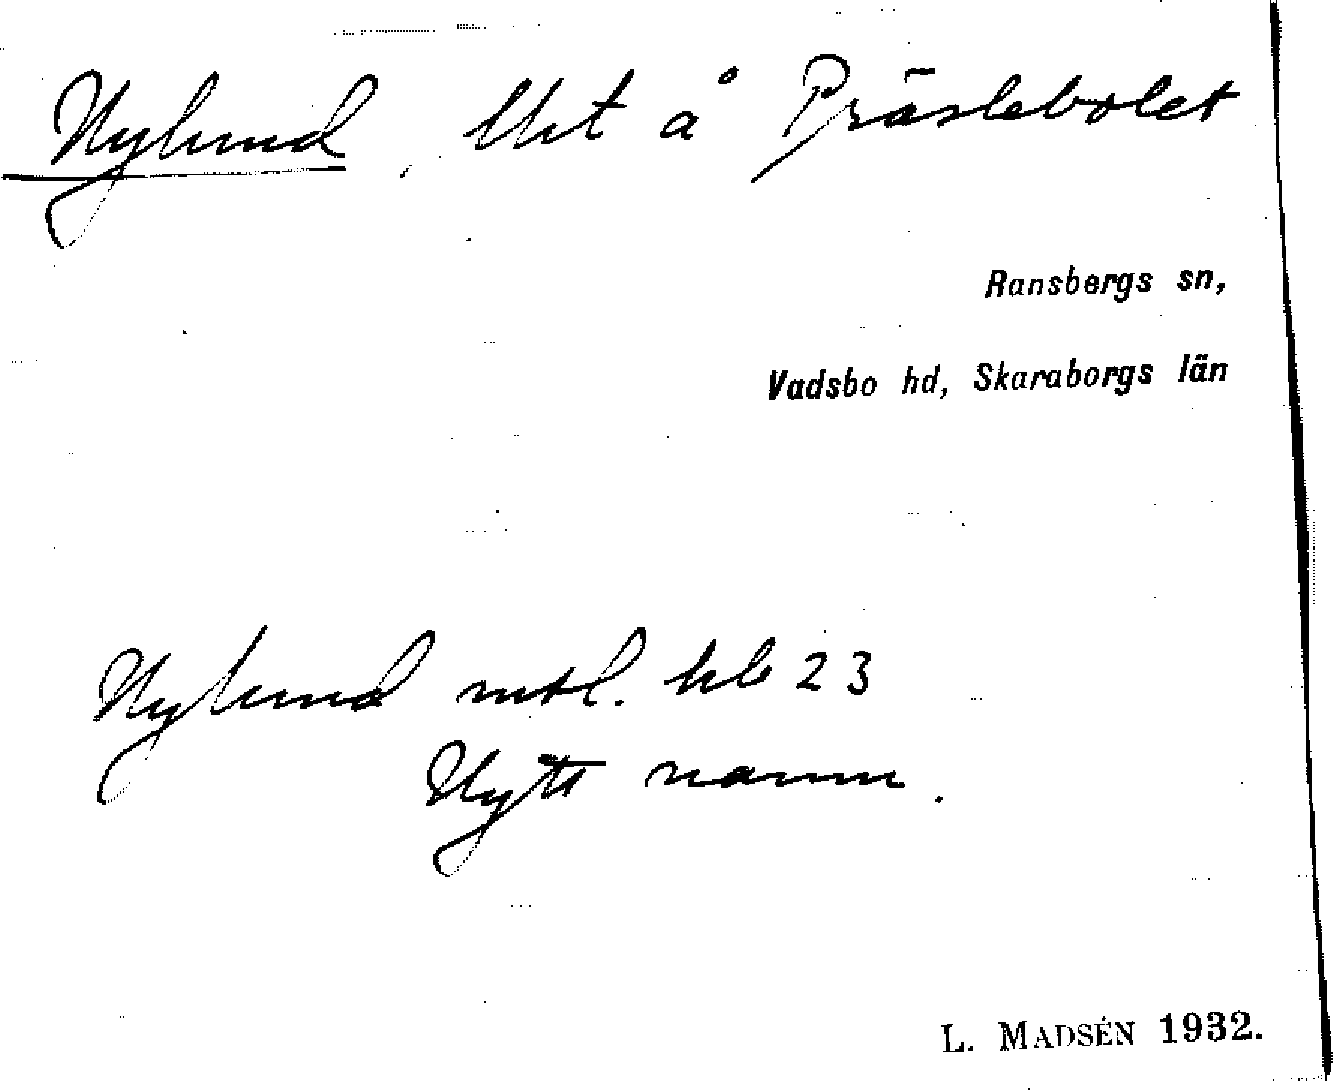 Nylund, lht å Prästebolet
Ransbergs sn,
Vadsbo hd, Skaraborgs län
Nylund mtl. 23
Nytt namn.
L. MADSÉN 1932.